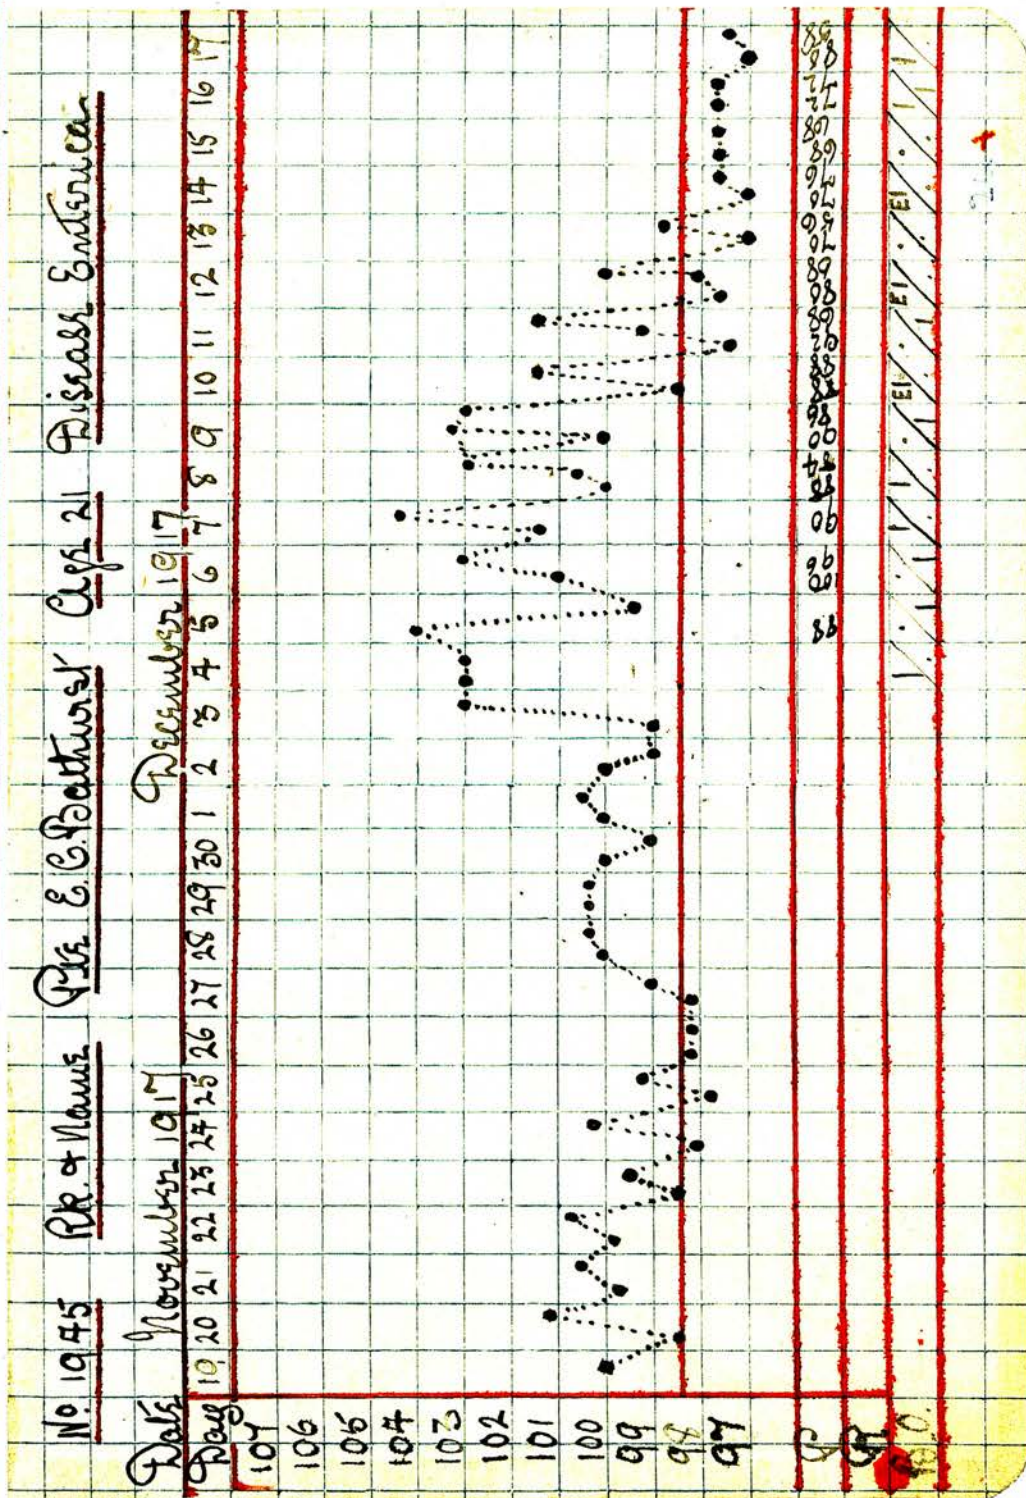 No. 1945 Rk. & Name Pte E. C. Bathurst Age 21 Disease Enterica
Date November 1917 December 1917
Day 19 20 21 22 23 24 25 26 27 28 29 30 1 2 3 4 5 6 7 8 9 10 11 12 13 14 15 16 17
107
106
105
104
103
102
101
100
99
98
97
P 98 100 96 90 90 86 88 88 92 68 80 68 70 76 70 76 68 68 72 72
R
B.O. EI EI EI